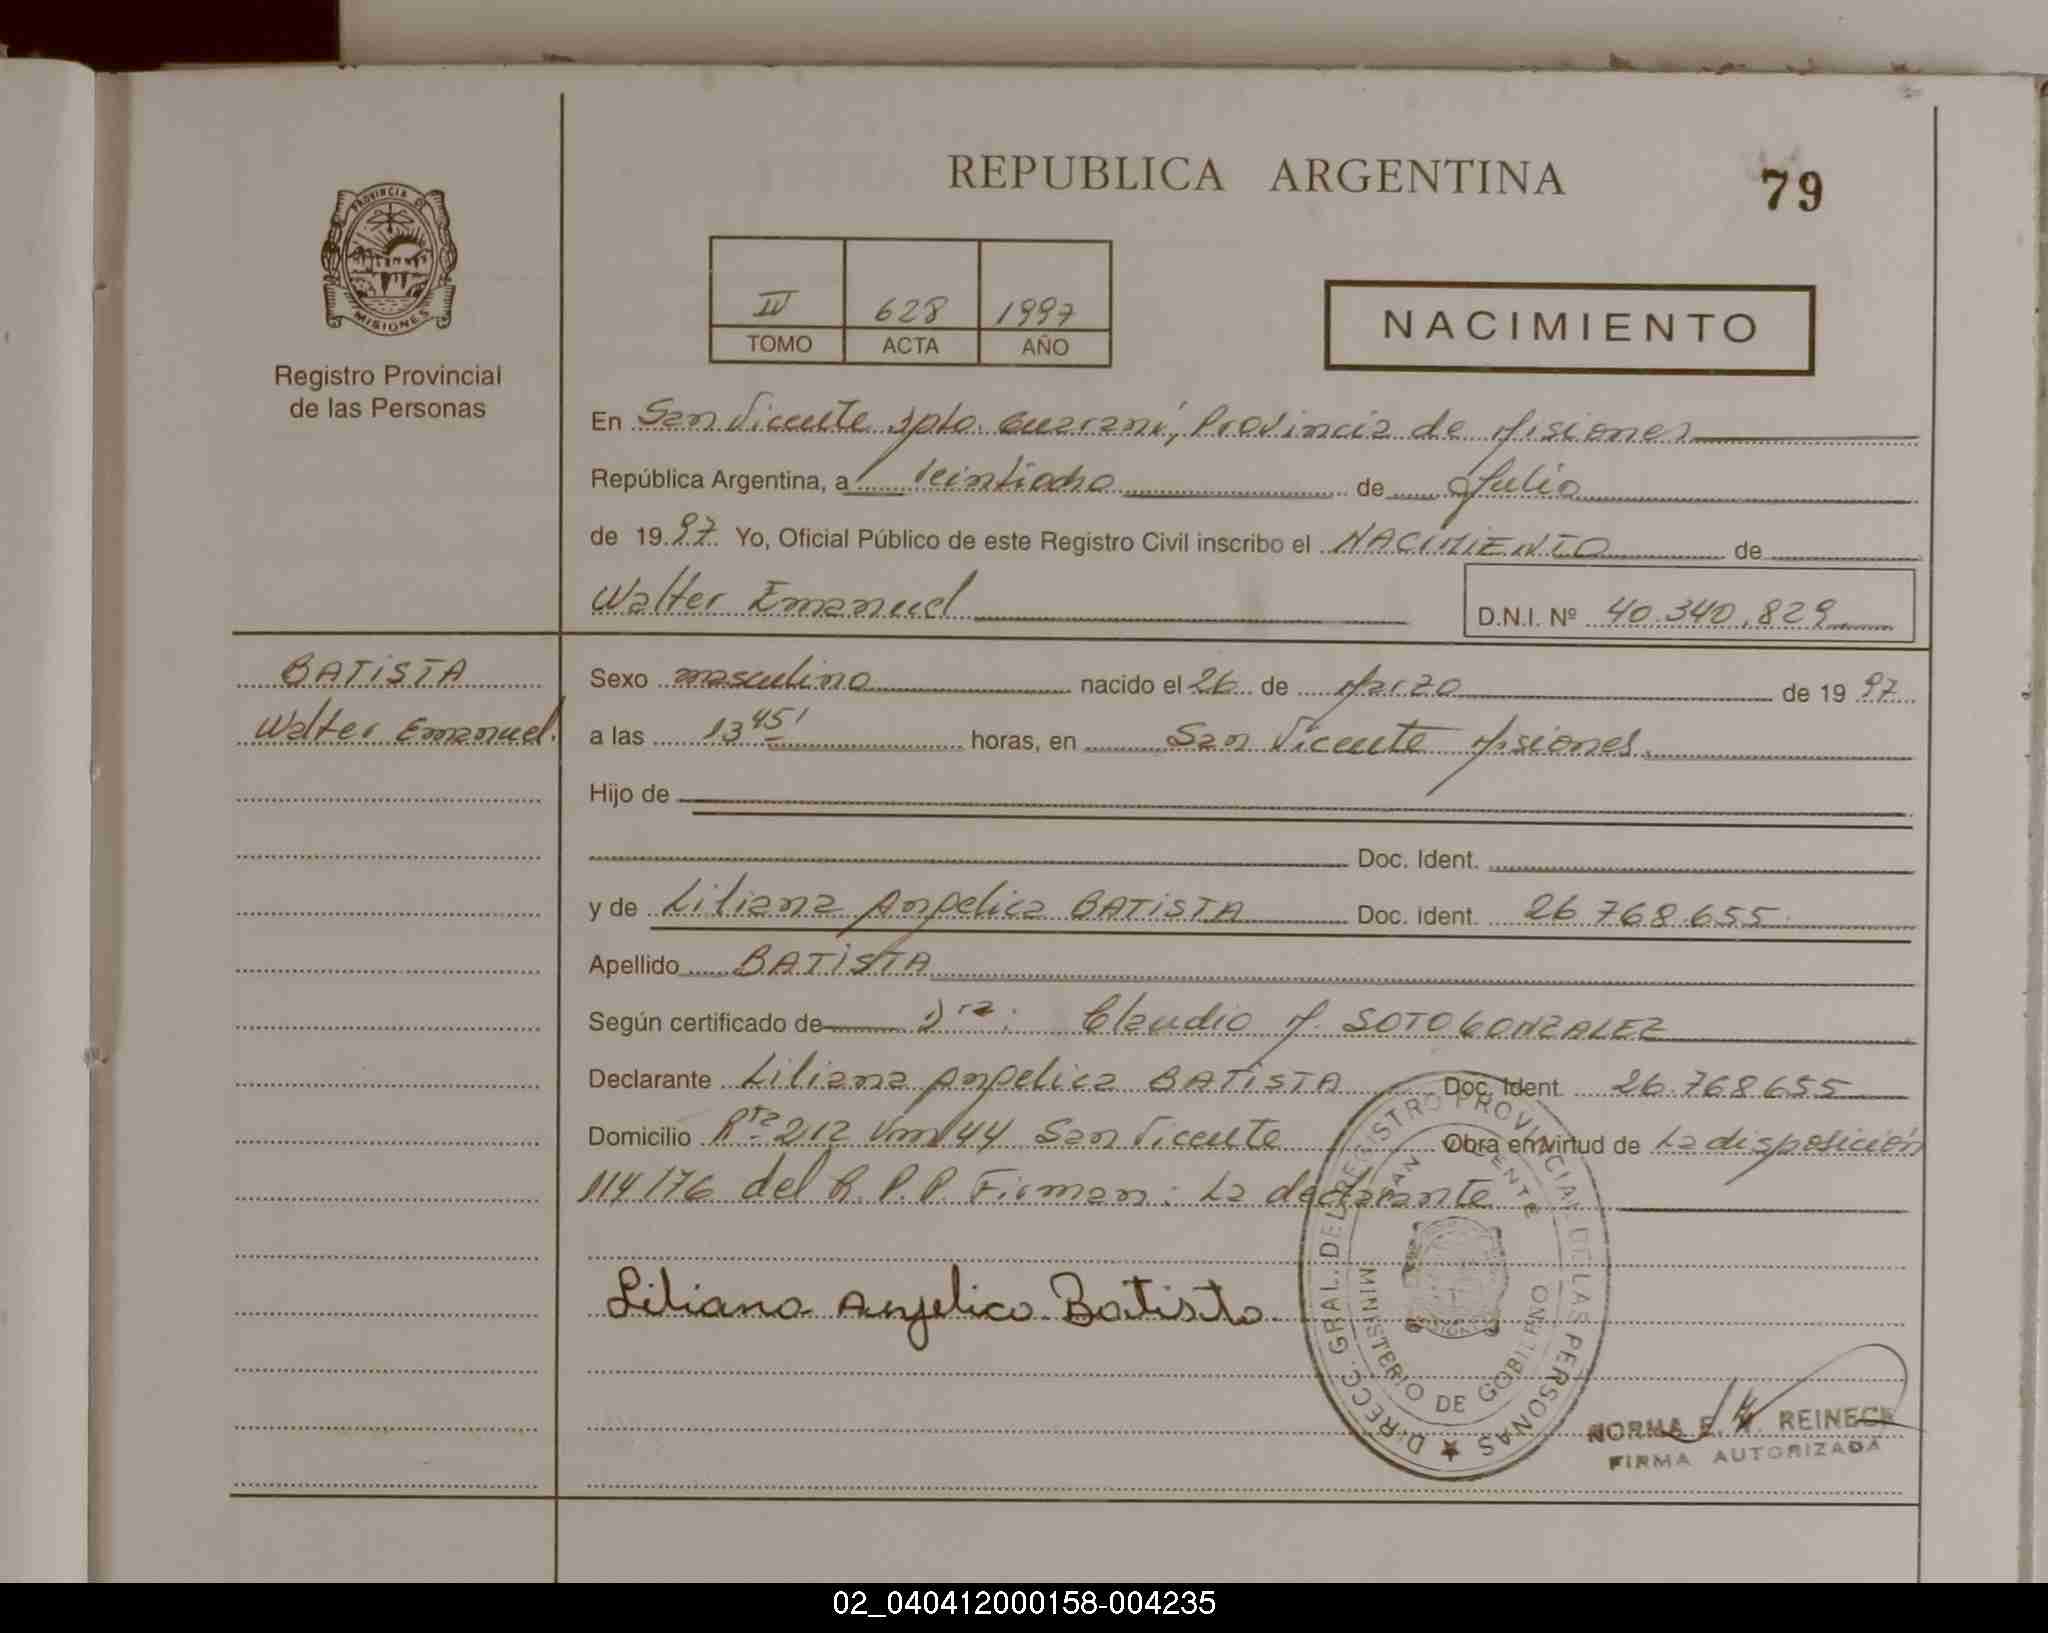 REPUBLICA ARGENTINA
79
PROVINCIA DE
MISIONES
Registro Provincial
de las Personas
IV 628 1997
TOMO ACTA AÑO
NACIMIENTO
En San Vicente Dpto. Guaraní, Provincia de Misiones
República Argentina, a veintiocho de Julio
de 1997 Yo, Oficial Público de este Registro Civil inscribo el NACIMIENTO de
Walter Emanuel
D.N.I. Nº 40.340.829
BATISTA
Walter Emanuel.
Sexo masculino nacido el 26 de Marzo de 1997
a las 13 45' horas, en San Vicente Misiones.
Hijo de
Doc. Ident.
y de Liliana Angelica BATISTA Doc. Ident. 26.768.655.
Apellido BATISTA
Según certificado de Dra. Claudio M. SOTO GONZALEZ
Declarante Liliana Angelica BATISTA Doc. Ident. 26.768655
Domicilio Rta 212 Km 44 San Vicente Obra en virtud de La disposición
114/76 del R.P.P. Firman: La declarante
Liliana Angelica Batista.
DIRECC. GRAL. DEL REGISTRO PROVINCIAL DE LAS PERSONAS
SAN VICENTE
MINISTERIO DE GOBIERNO
NORMA E. REINECK
FIRMA AUTORIZADA
02_040412000158-004235